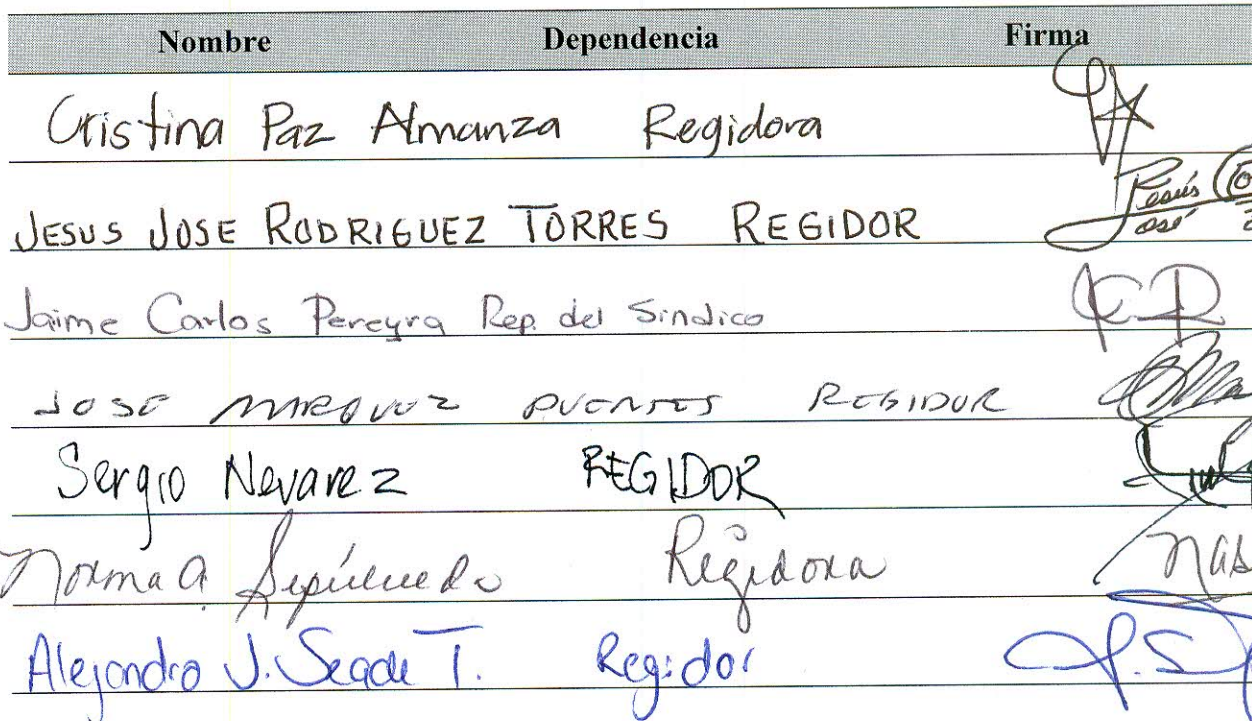 Nombre Dependencia Firma
Cristina Paz Almanza Regidora
JESUS JOSE RODRIGUEZ TORRES REGIDOR Jesús José
Jaime Carlos Pereyra Rep. del Sindico
JOSE MARQUEZ PUENTES REGIDOR
Sergio Nevarez REGIDOR
Norma A. Sepúlveda Regidora NAS
Alejandro J. Seade T. Regidor